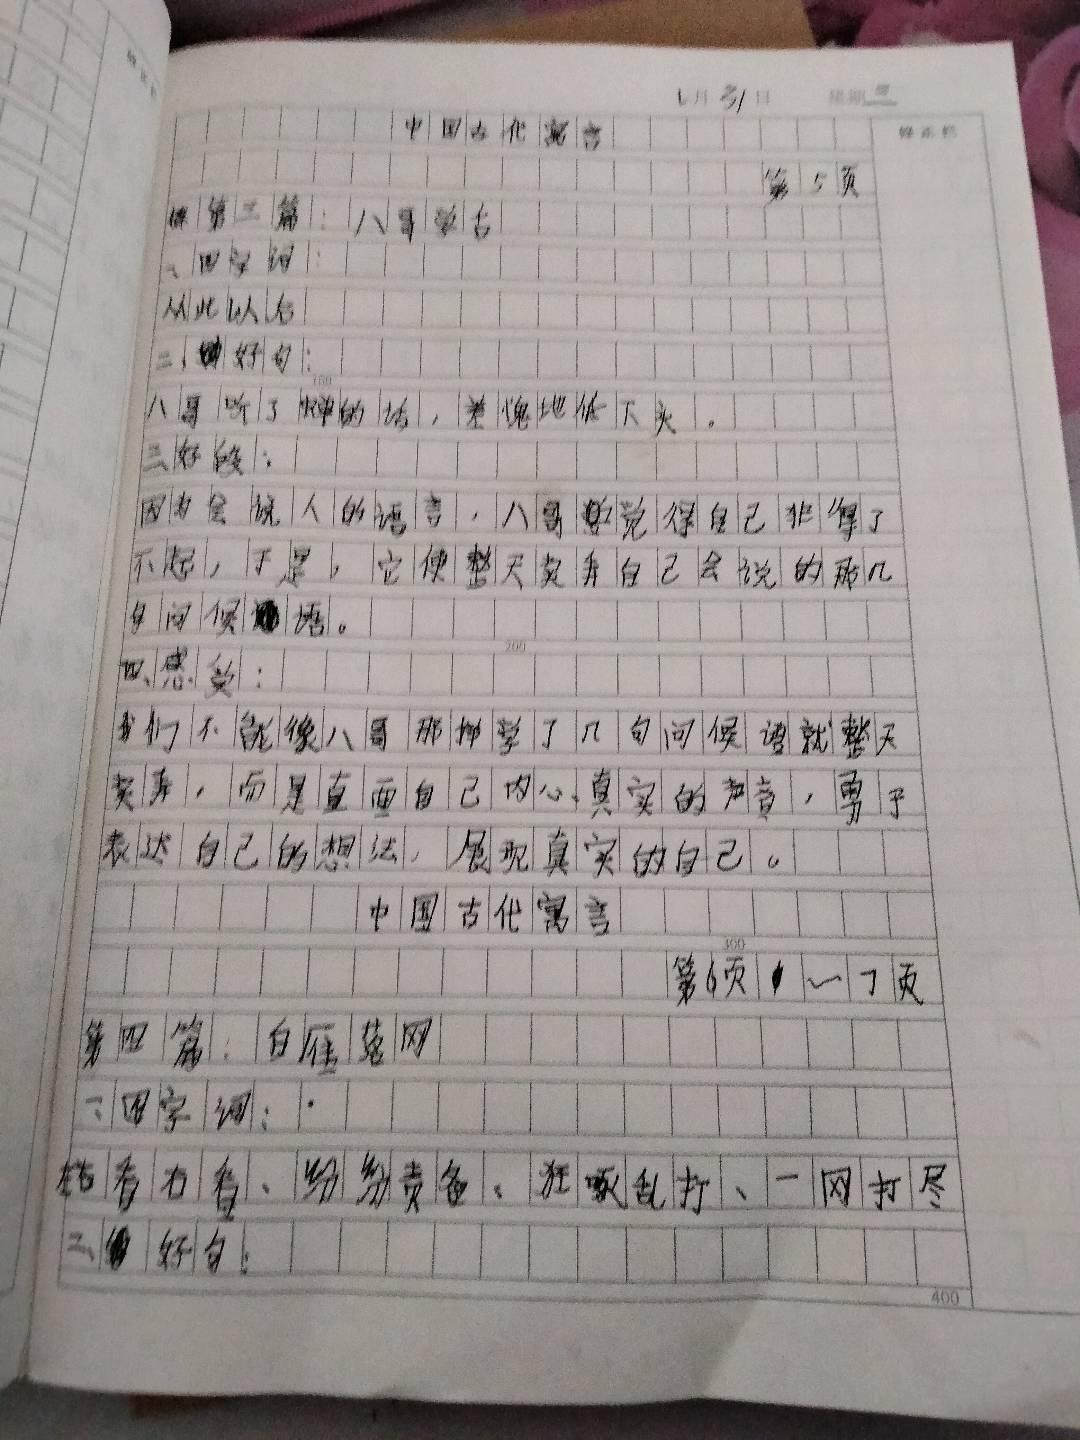 1月31日 星期
中国古代寓言
修正栏
第5页
第三篇：八哥学舌
一、四字词：
从此以后
二、好句：
100
八哥听了蝉的话，羞愧地低下头。
三、好段：
因为会说人的语言，八哥觉得自己非得了
不起，于是，它便整天卖弄自己会说的那几
句问候语。
200
四、感受：
我们不能像八哥那样学了几句问候语就整天
卖弄，而是直面自己内心真实的声音，勇于
表达自己的想法，展现真实的自己。
中国古代寓言
300
第6页～7页
第四篇：白雁落网
一、四字词：
左看右看、纷纷责备、狂啄乱打、一网打尽
二、好句：
400